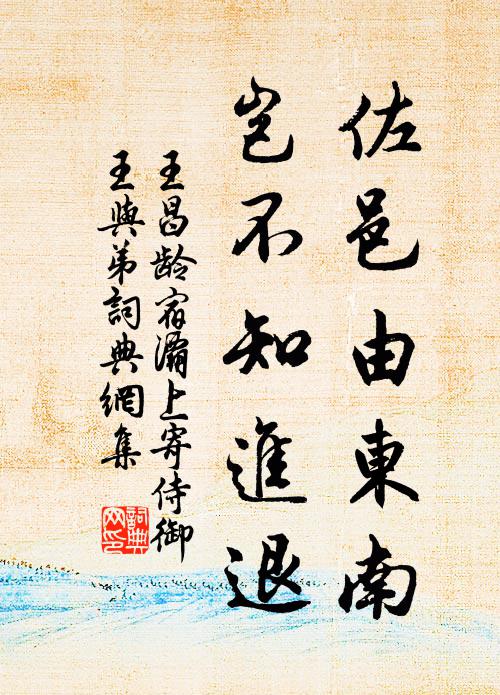 佐邑由東南
豈不知進退
王昌齡宿灞上寄侍御
王與弟詞典網集
詞典
网印